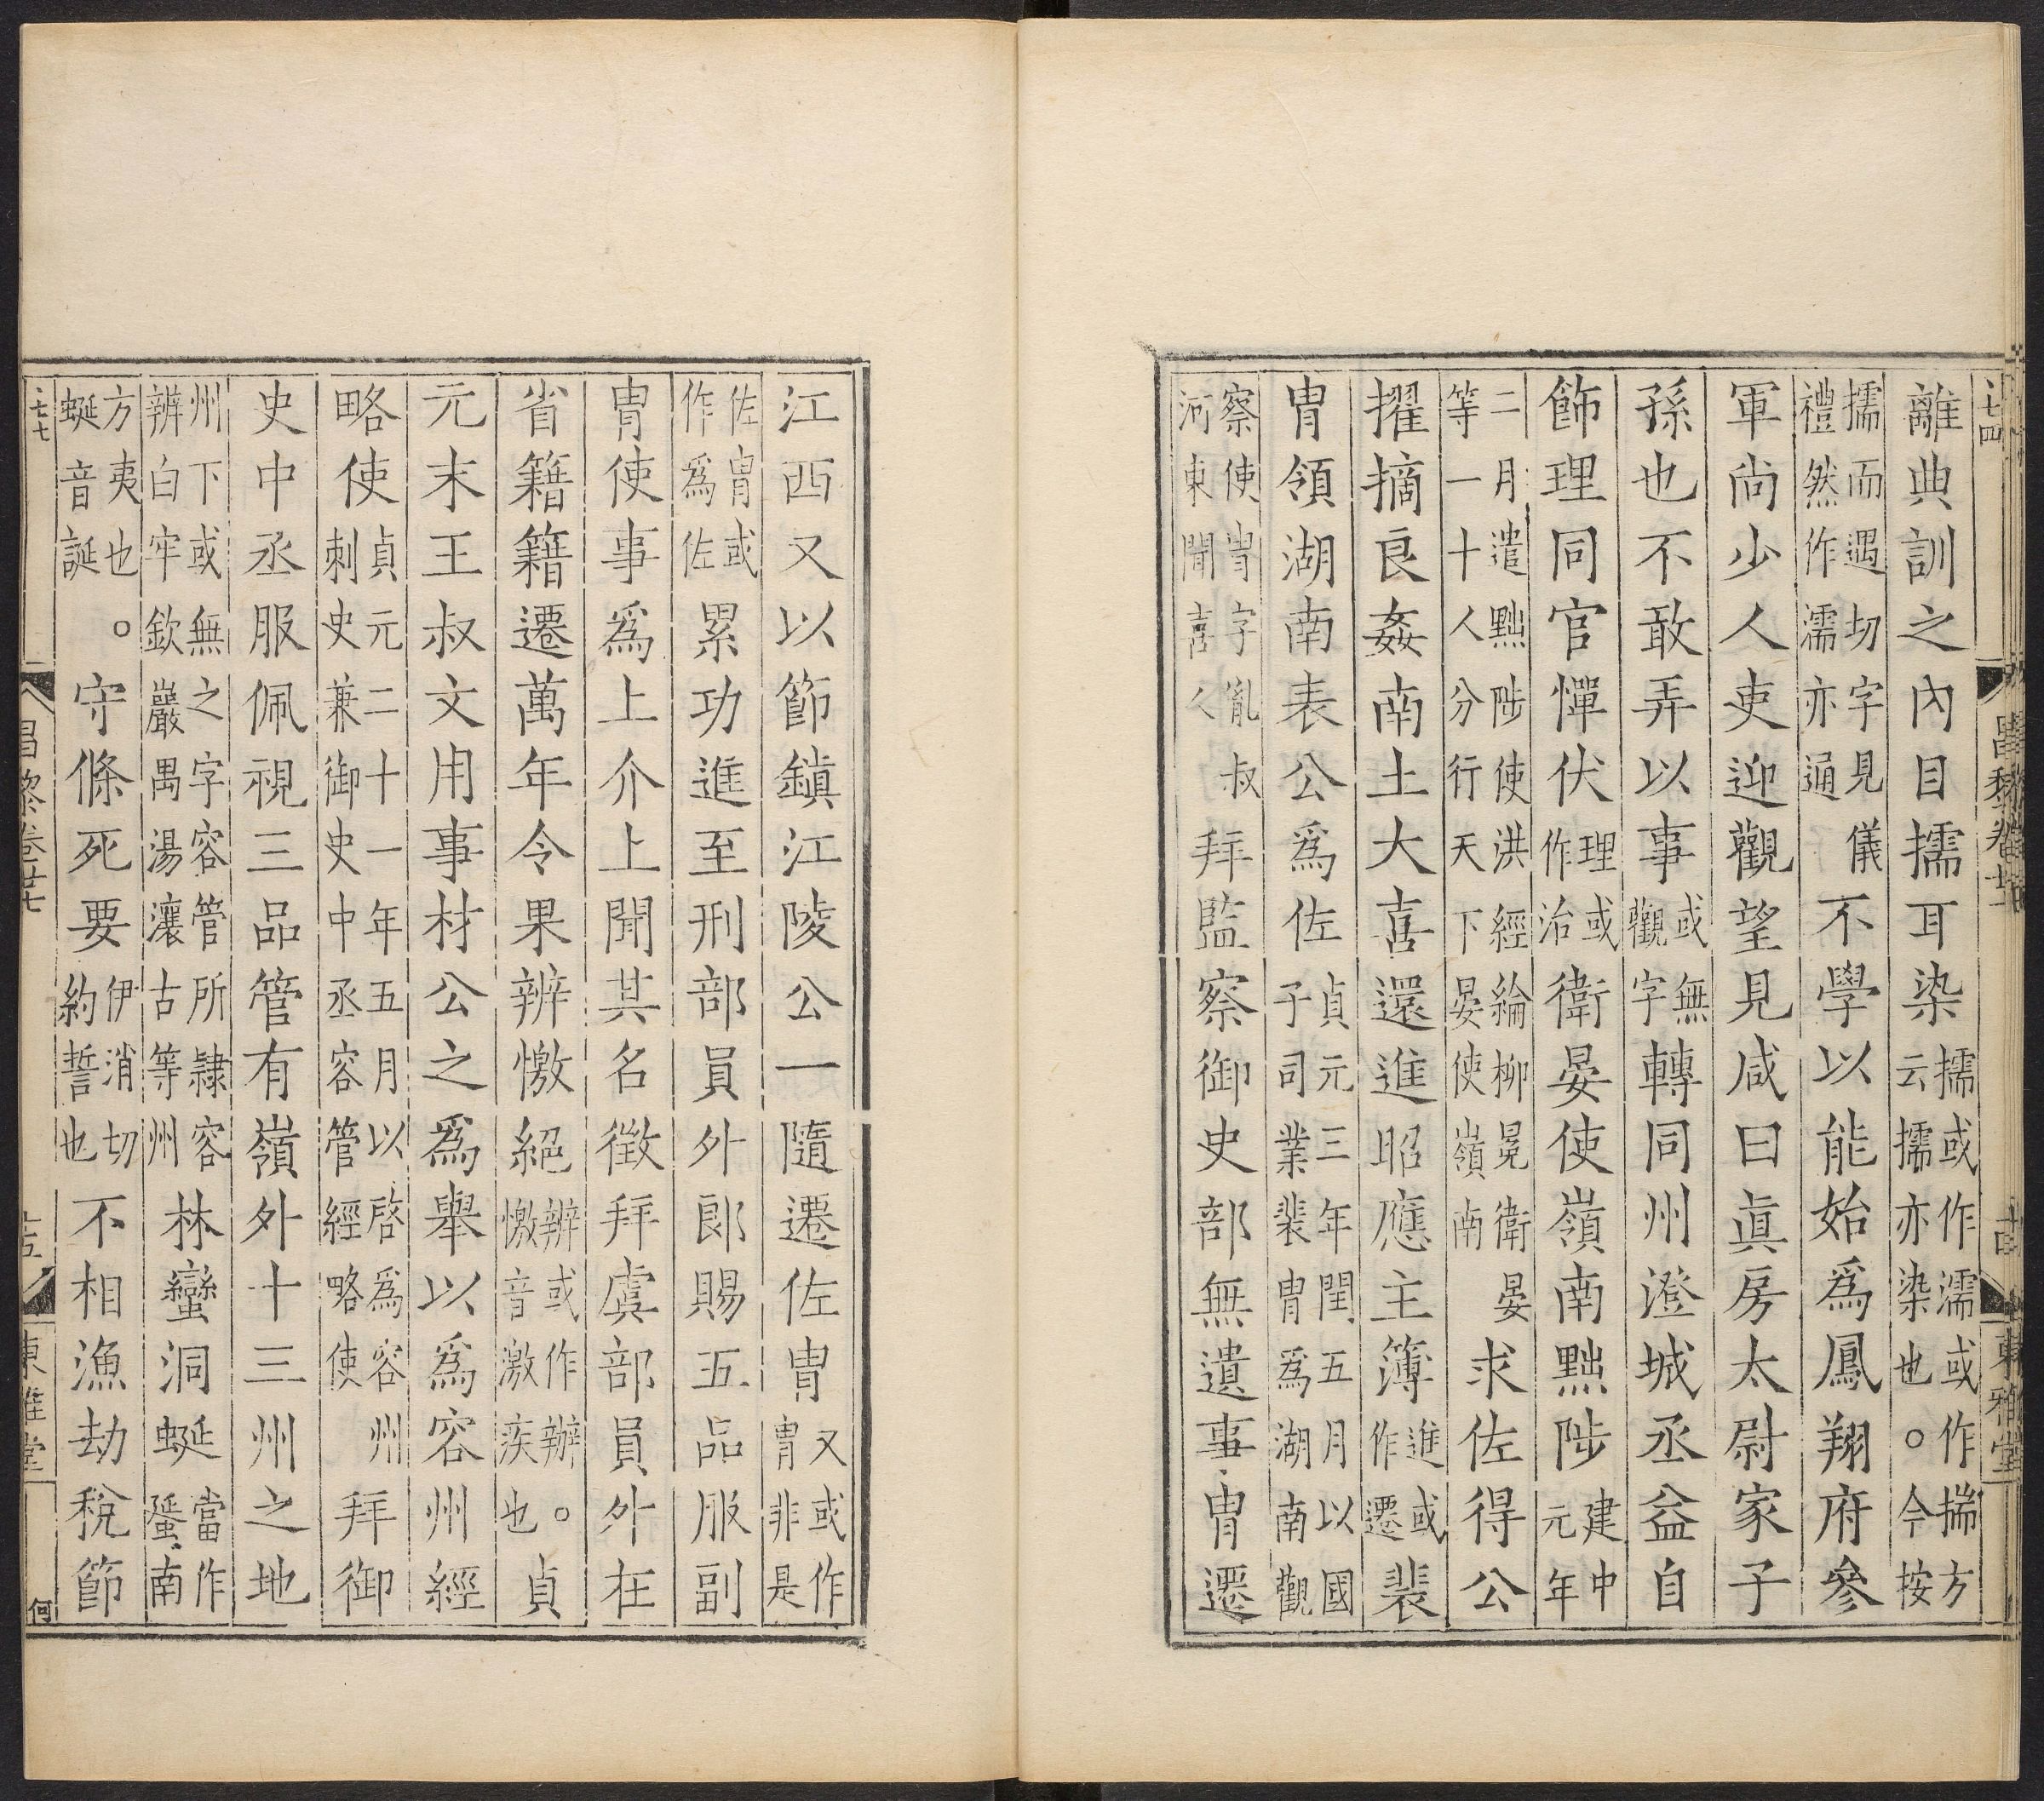 離典訓之內目擩耳染擩或作濡或作㨎方云擩亦染也。今按
擩而遇切字見儀禮然作濡亦通不學以能始爲鳳翔府參
軍尚少人吏迎觀望見咸曰眞房太尉家子
孫也不敢弄以事或無觀字轉同州澄城丞益自
飾理同官憚伏理或作治衛晏使嶺南黜陟建中元年
二月遣黜陟使洪經綸柳冕衛晏等一十人分行天下晏使嶺南求佐得公
擢摘良姦南土大喜還進昭應主簿進或作遷裴
胄領湖南表公爲佐貞元三年閏五月以國子司業裴胄爲湖南觀
察使胄字胤叔河東聞喜人拜監察御史部無遺事胄遷
七四
昌黎卷廿七
十四
東雅堂
江西又以節鎮江陵公一隨遷佐胄又或作胄非是
佐胄或作爲佐累功進至刑部員外郎賜五品服副
胄使事爲上介上聞其名徵拜虞部員外在
省籍籍遷萬年令果辨憿絕辨或作辦。憿音激疾也貞
元末王叔文用事材公之爲舉以爲容州經
略使貞元二十一年五月以啓爲容州刺史兼御史中丞容管經略使拜御
史中丞服佩視三品管有嶺外十三州之地
州下或無之字容管所隷容辨白牢欽巖禺湯瀼古等州林蠻洞蜒當作蜑南
方夷也。蜒音誕守條死要伊消切約誓也不相漁劫稅節
七七
昌黎卷廿七
十五
東雅堂
何